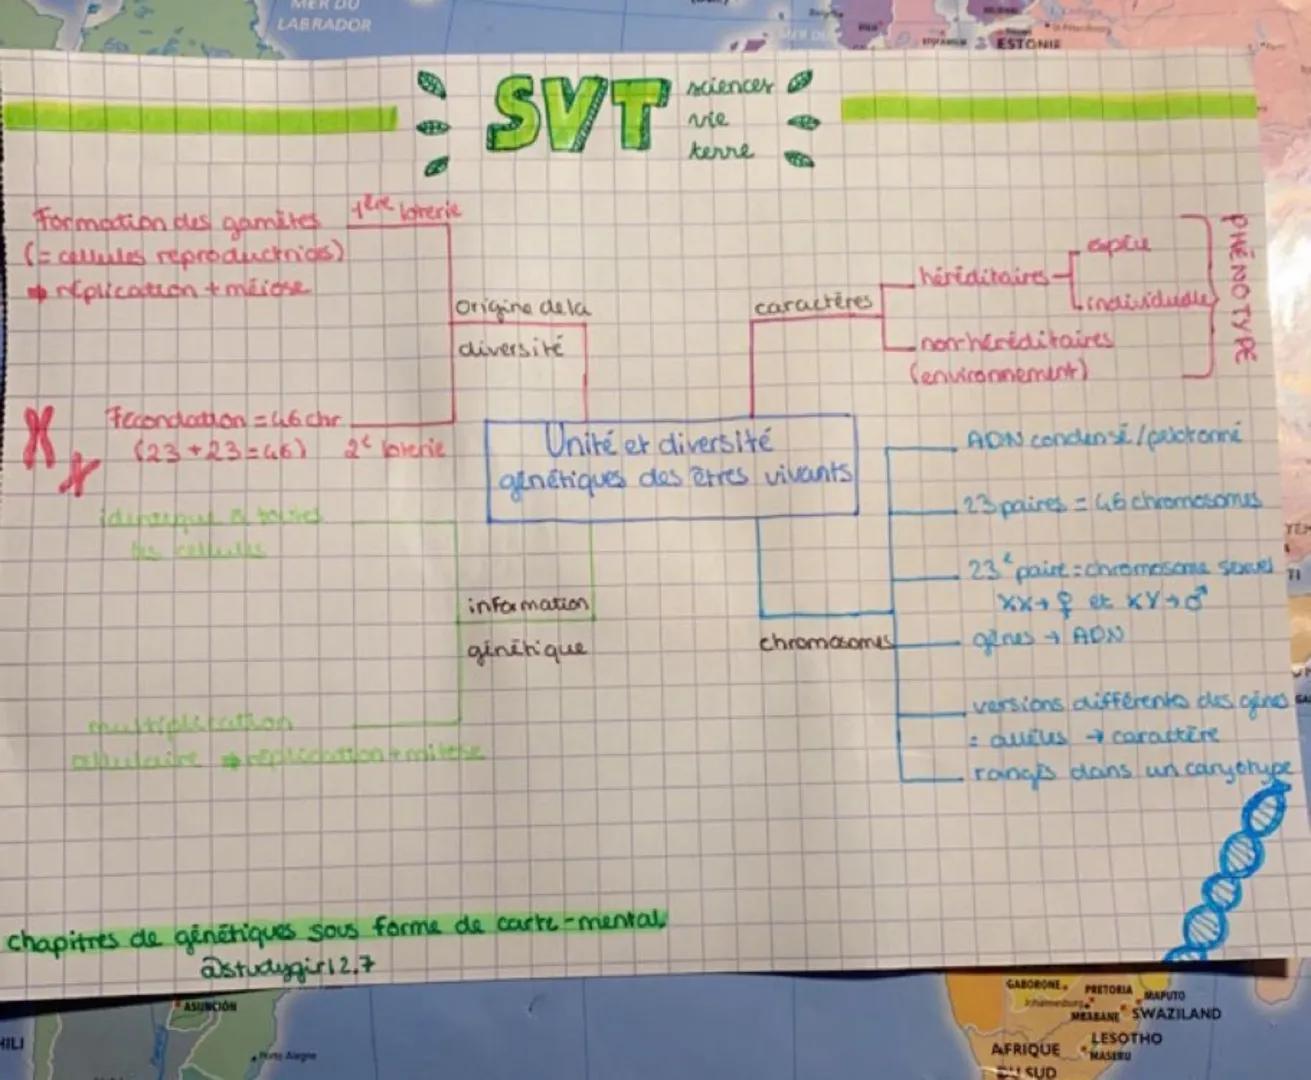 MER DU
LABRADOR
ESTONIE
SVT
sciences
vie
terre
Formation des gamètes
(= cellules reproductrices)
→ réplication + méiose
1ère loterie
Origine de la
diversité
Fécondation = 46 chr
(23 + 23 = 46) 2e loterie
caractères
héréditaires
espèce
individuelle
non-héréditaires
(environnement)
PHÉNOTYPE
Unité et diversité
génétiques des êtres vivants
identique à toutes
les cellules
information
génétique
multiplication
cellulaire → réplication + mitose
chromosomes
ADN condensé / pelotonné
23 paires = 46 chromosomes
23e paire = chromosome sexuel
XX → ♀ et XY → ♂
gènes → ADN
versions différentes des gènes
= allèles → caractère
rangés dans un caryotype
chapitres de génétiques sous forme de carte-mental,
@studygirl2.7
ASUNCIÓN
Porto Alegre
HILI
GABORONE
PRETORIA
MAPUTO
Johannesburg
MBABANE SWAZILAND
LESOTHO
AFRIQUE
MASERU
DU SUD